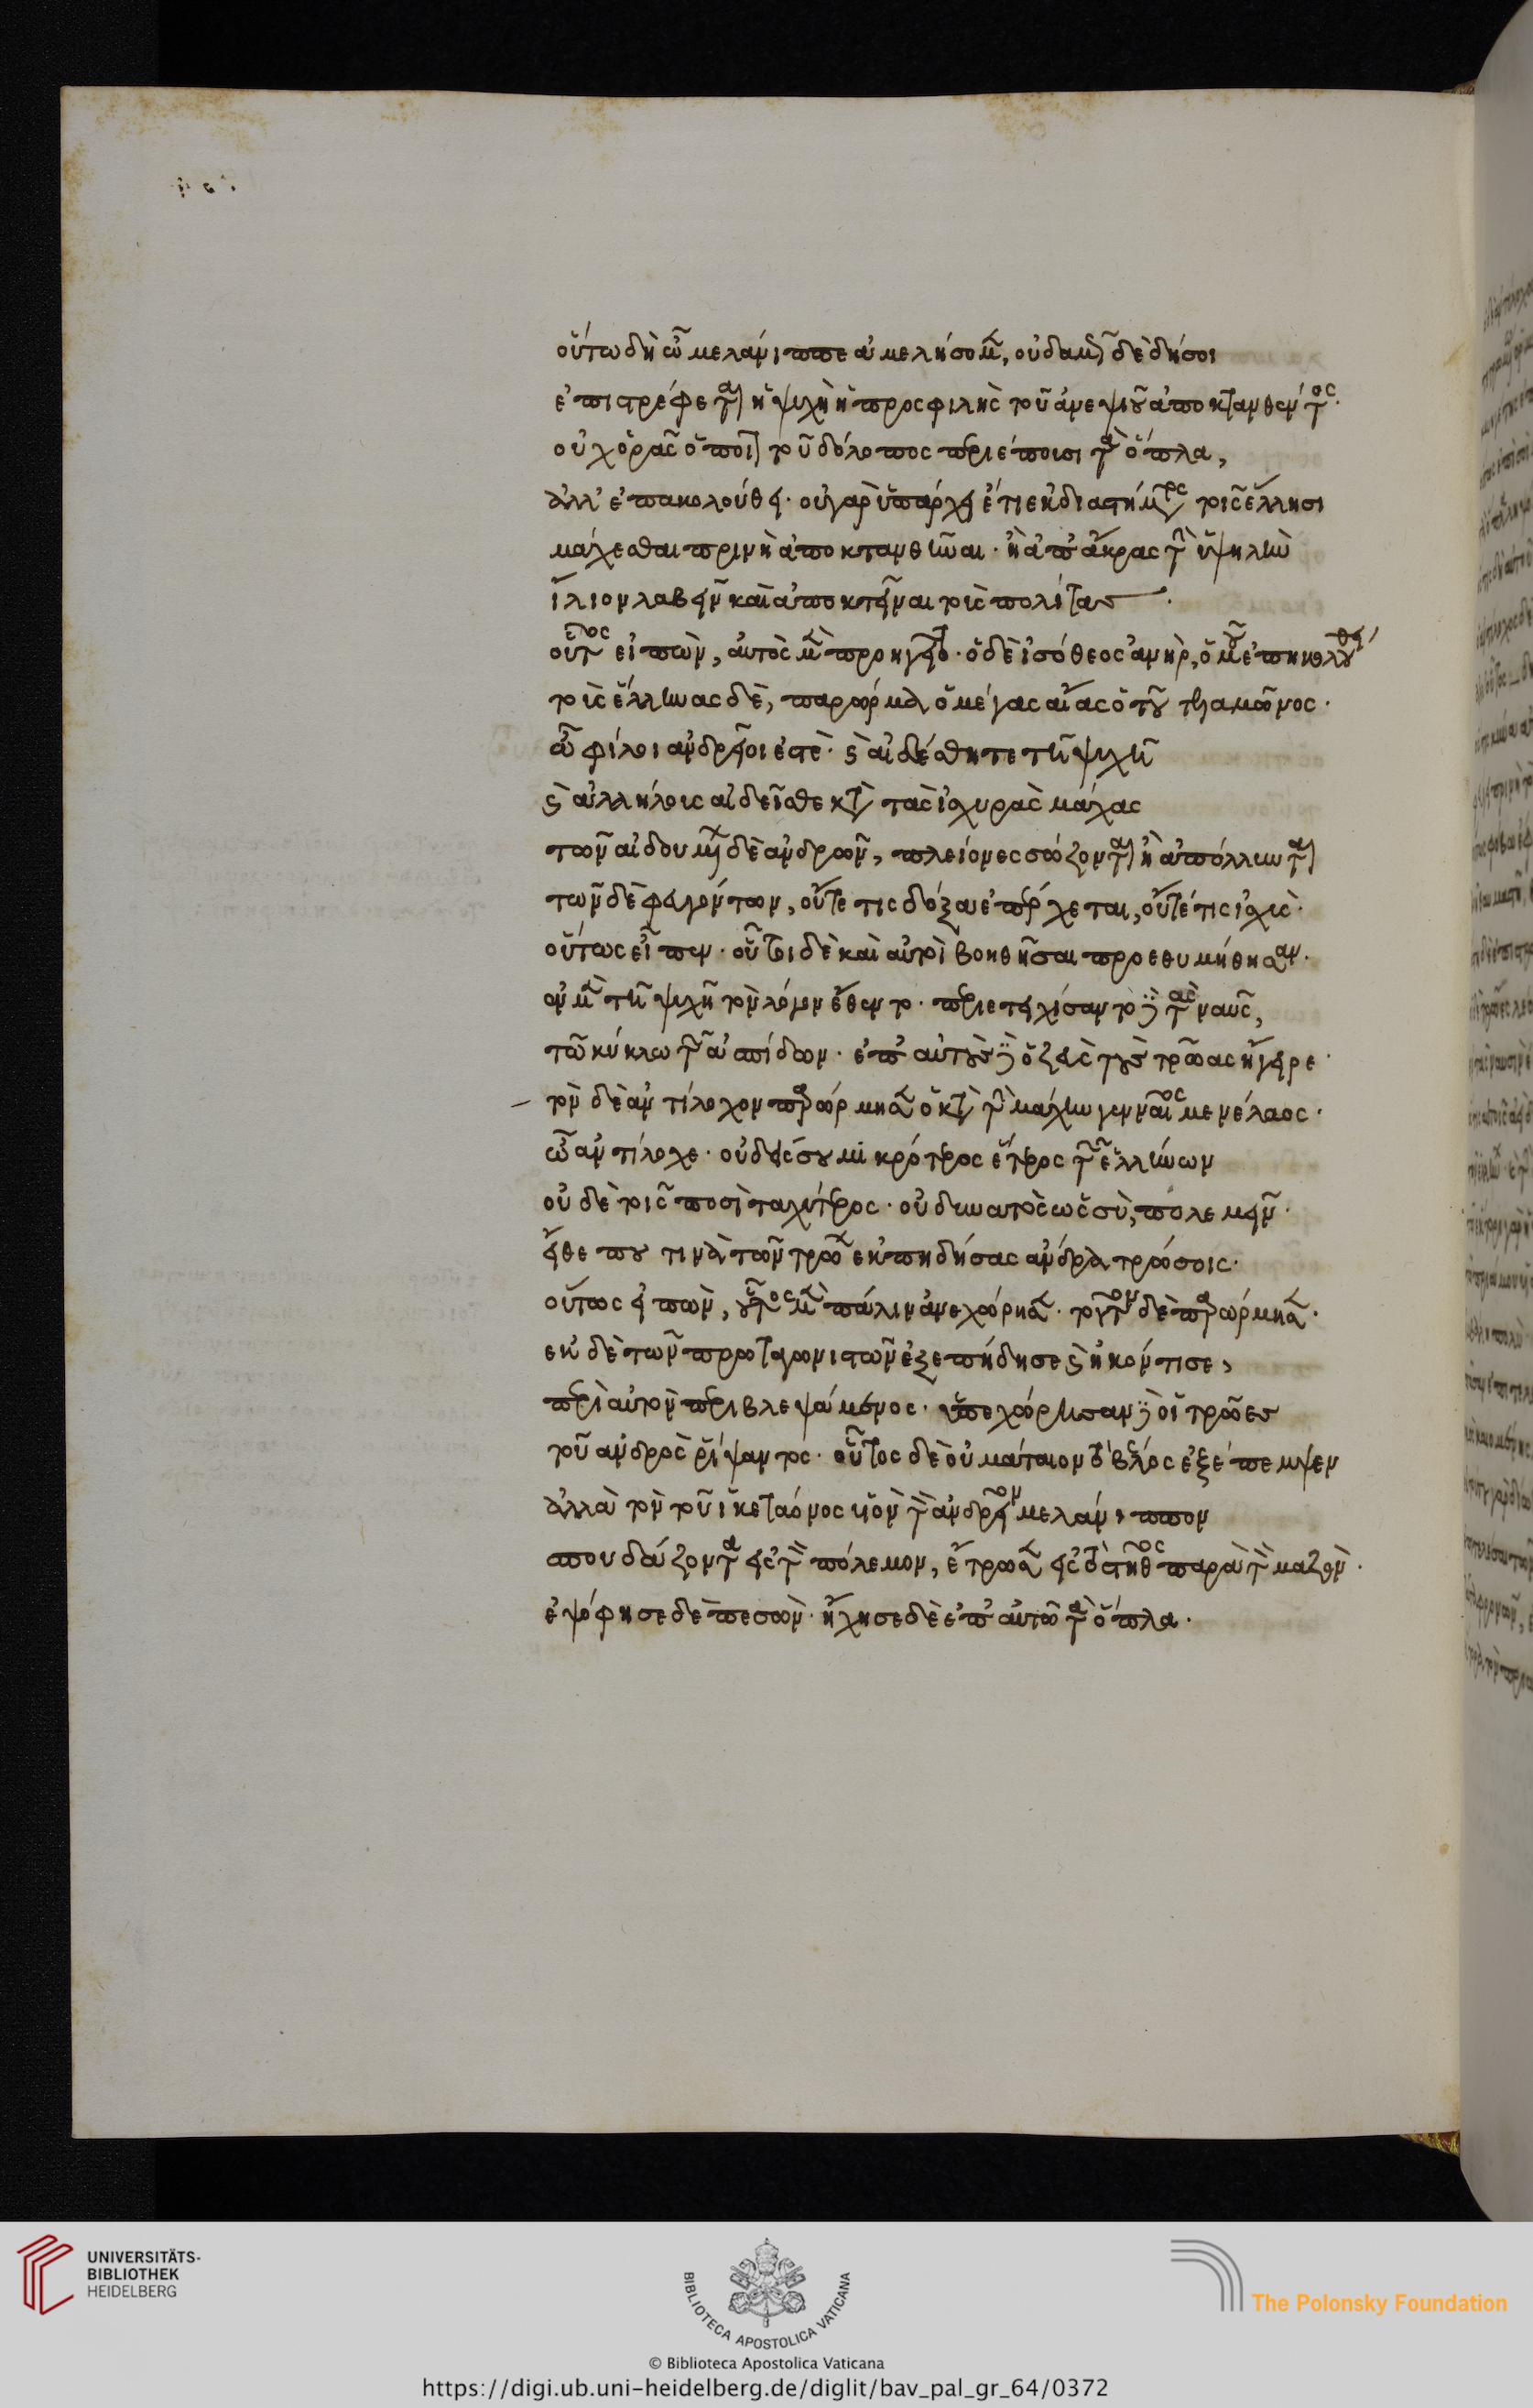 οὕτω δὴ ὦ μελάνιππε ἀμελήσομεν, οὐδαμῶς δὲ δή σοι
ἐπιστρέφεται ἡ ψυχὴ ἡ προσφιλὴς τοῦ ἀνεψιοῦ ἀποκτανθέντος.
οὐχ ὁρᾶς ὁποῖ τοῦ δόλοπος περιέποισι τὰ ὅπλα,
ἀλλ' ἐπακολούθει. οὐ γὰρ ὑπάρχει ἔτι ἐκ διαστήματος τοῖς ἕλλησι
μάχεσθαι πρὶν ἢ ἀποκτανθῆναι. ἢ ἀπ' ἄκρας τὴν ὑψηλὴν
ἴλιον λαβεῖν καὶ ἀποκτεῖναι τοὺς πολίτας.
οὗτος εἰπὼν, αὐτὸς μὲν προηγεῖτο. ὁ δὲ ἰσόθεος ἀνὴρ, ὁμοῦ ἐπηκολούθει
τοὺς ἕλληνας δὲ, παρώρμα ὁ μέγας αἴας ὁ τοῦ τελαμῶνος.
ὦ φίλοι ἀνδρεῖοι ἐστὲ. καὶ αἰδέσθητε τῆ ψυχῆ
καὶ ἀλλήλοις αἰδεῖσθε κατὰ τὰς ἰσχυρὰς μάχας
τῶν αἰδουμένων δὲ ἀνδρῶν, πλείονες σώζονται ἢ ἀπόλλυνται
τῶν δὲ φευγόντων, οὔτε τις δόξα ἐπέρχεται, οὔτέ τις ἰσχὺς.
οὕτως εἶπεν. οὗτοι δὲ καὶ αὐτοὶ βοηθῆσαι προεθυμήθησαν.
ἐν μὲν τῆ ψυχῆ τὸν λόγον ἔθεντο. περιετειχίσαντο δὲ τὰς ναῦς,
τῶ κύκλω τῶν ἀσπίδων. ἐπ' αὐτοὺς δὲ ὁ ζεὺς τοὺς τρῶας ἤγειρε.
τὸν δὲ ἀντίλοχον παρώρμησεν ὁ κατὰ τὴν μάχην γενναῖος μενέλαος.
ὦ ἀντίλοχε. οὐδείς σου μικρότερος ἕτερος τῶν ἑλλήνων
οὐδὲ τοῖς ποσὶ ταχύτερος. οὐ δυνατὸς ὡς σὺ, πολεμεῖν.
εἴθε που τινὰ τῶν τρώων ἐκπηδήσας ἄνδρα τρώσοις.
οὕτως εἰπὼν, οὗτος μὲν πάλιν ἀνεχώρησεν. τοῦτον δὲ παρώρμησεν.
ἐκ δὲ τῶν πρωταγωνιστῶν ἐξεπήδησε καὶ ἠκόντισε,
περὶ αὐτὸν περιβλεψάμενος. ὑπεχώρησαν δὲ οἱ τρῶες
τοῦ ἀνδρὸς ῥίψαντος. οὗτος δὲ οὐ μάταιον τὸ βέλος ἐξέπεμψεν
ἀλλὰ τὸν τοῦ ἱκεταόνος υἱὸν τὸν ἀνδρεῖον μελάνιππον
σπουδάζοντα εἰς τὸν πόλεμον, ἔτρωσεν εἰς τὸ στῆθος παρὰ τὸν μαζὸν.
ἐψόφησε δὲ πεσὼν. ἤχησε δὲ ἐπ' αὐτῶ τὰ ὅπλα.
UNIVERSITÄTS-
BIBLIOTHEK
HEIDELBERG
BIBLIOTECA APOSTOLICA VATICANA
The Polonsky Foundation
© Biblioteca Apostolica Vaticana
https://digi.ub.uni-heidelberg.de/diglit/bav_pal_gr_64/0372